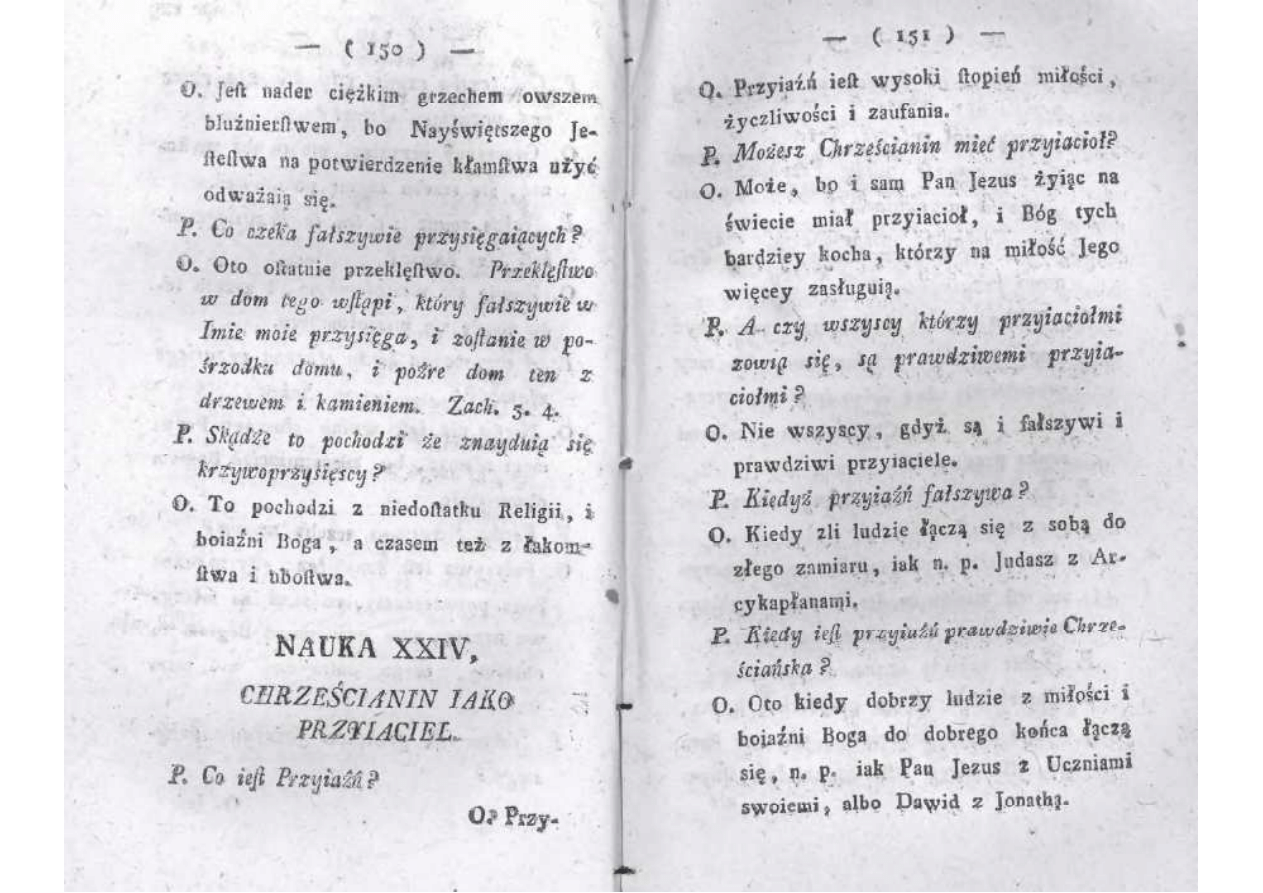 — ( 150 ) —
O. Jeſt nader ciężkim grzechem owszem
bluźnierſtwem, bo Nayświętszego Je-
ſteſtwa na potwierdzenie kłamſtwa użyć
odważaią się.
P. Co czeka fałszywie przysięgaiących?
O. Oto oſtatnie przeklęſtwo. Przeklęſtwo
w dom tego wſtąpi, który fałszywie w
Imie moie przysięga, i zoſtanie w po-
śrzodku domu, i pożre dom ten z
drzewem i kamieniem. Zach. 5. 4.
P. Skądże to pochodzi że znayduią się
krzywoprzysięscy?
O. To pochodzi z niedoſtatku Religii, i
boiaźni Boga, a czasem też z łakom-
ſtwa i uboſtwa.
NAUKA XXIV,
CHRZEŚCIANIN IAKO
PRZYIACIEL.
P. Co ieſt Przyiaźń?
O. Przy-
— ( 151 ) —
O. Przyiaźń ieſt wysoki ſtopień miłości,
życzliwości i zaufania.
P. Możesz Chrześcianin mieć przyiacioł?
O. Może, bo i sam Pan Jezus żyiąc na
świecie miał przyiacioł, i Bóg tych
bardziey kocha, którzy na miłość Jego
więcey zasługuią.
P. A czy wszyscy którzy przyiaciołmi
zowią się, są prawdziwemi przyia-
ciołmi?
O. Nie wszyscy, gdyż są i fałszywi i
prawdziwi przyiaciele.
P. Kiedyż przyiaźń fałszywa?
O. Kiedy zli ludzie łączą się z sobą do
złego zamiaru, iak n. p. Judasz z Ar-
cykapłanami.
P. Kiedy ieſt przyiaźń prawdziwie Chrze-
ściańska?
O. Oto kiedy dobrzy ludzie z miłości i
boiaźni Boga do dobrego końca łączą
się, n. p. iak Pan Jezus z Uczniami
swoiemi, albo Dawid z Jonathą.